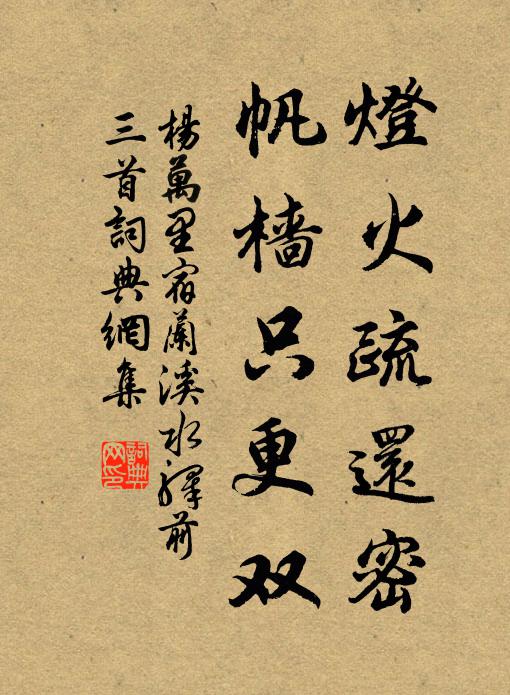 燈火疏還密
帆樯只更双
楊萬里宿蘭溪水驛前
三首詞典網集
詞典網印